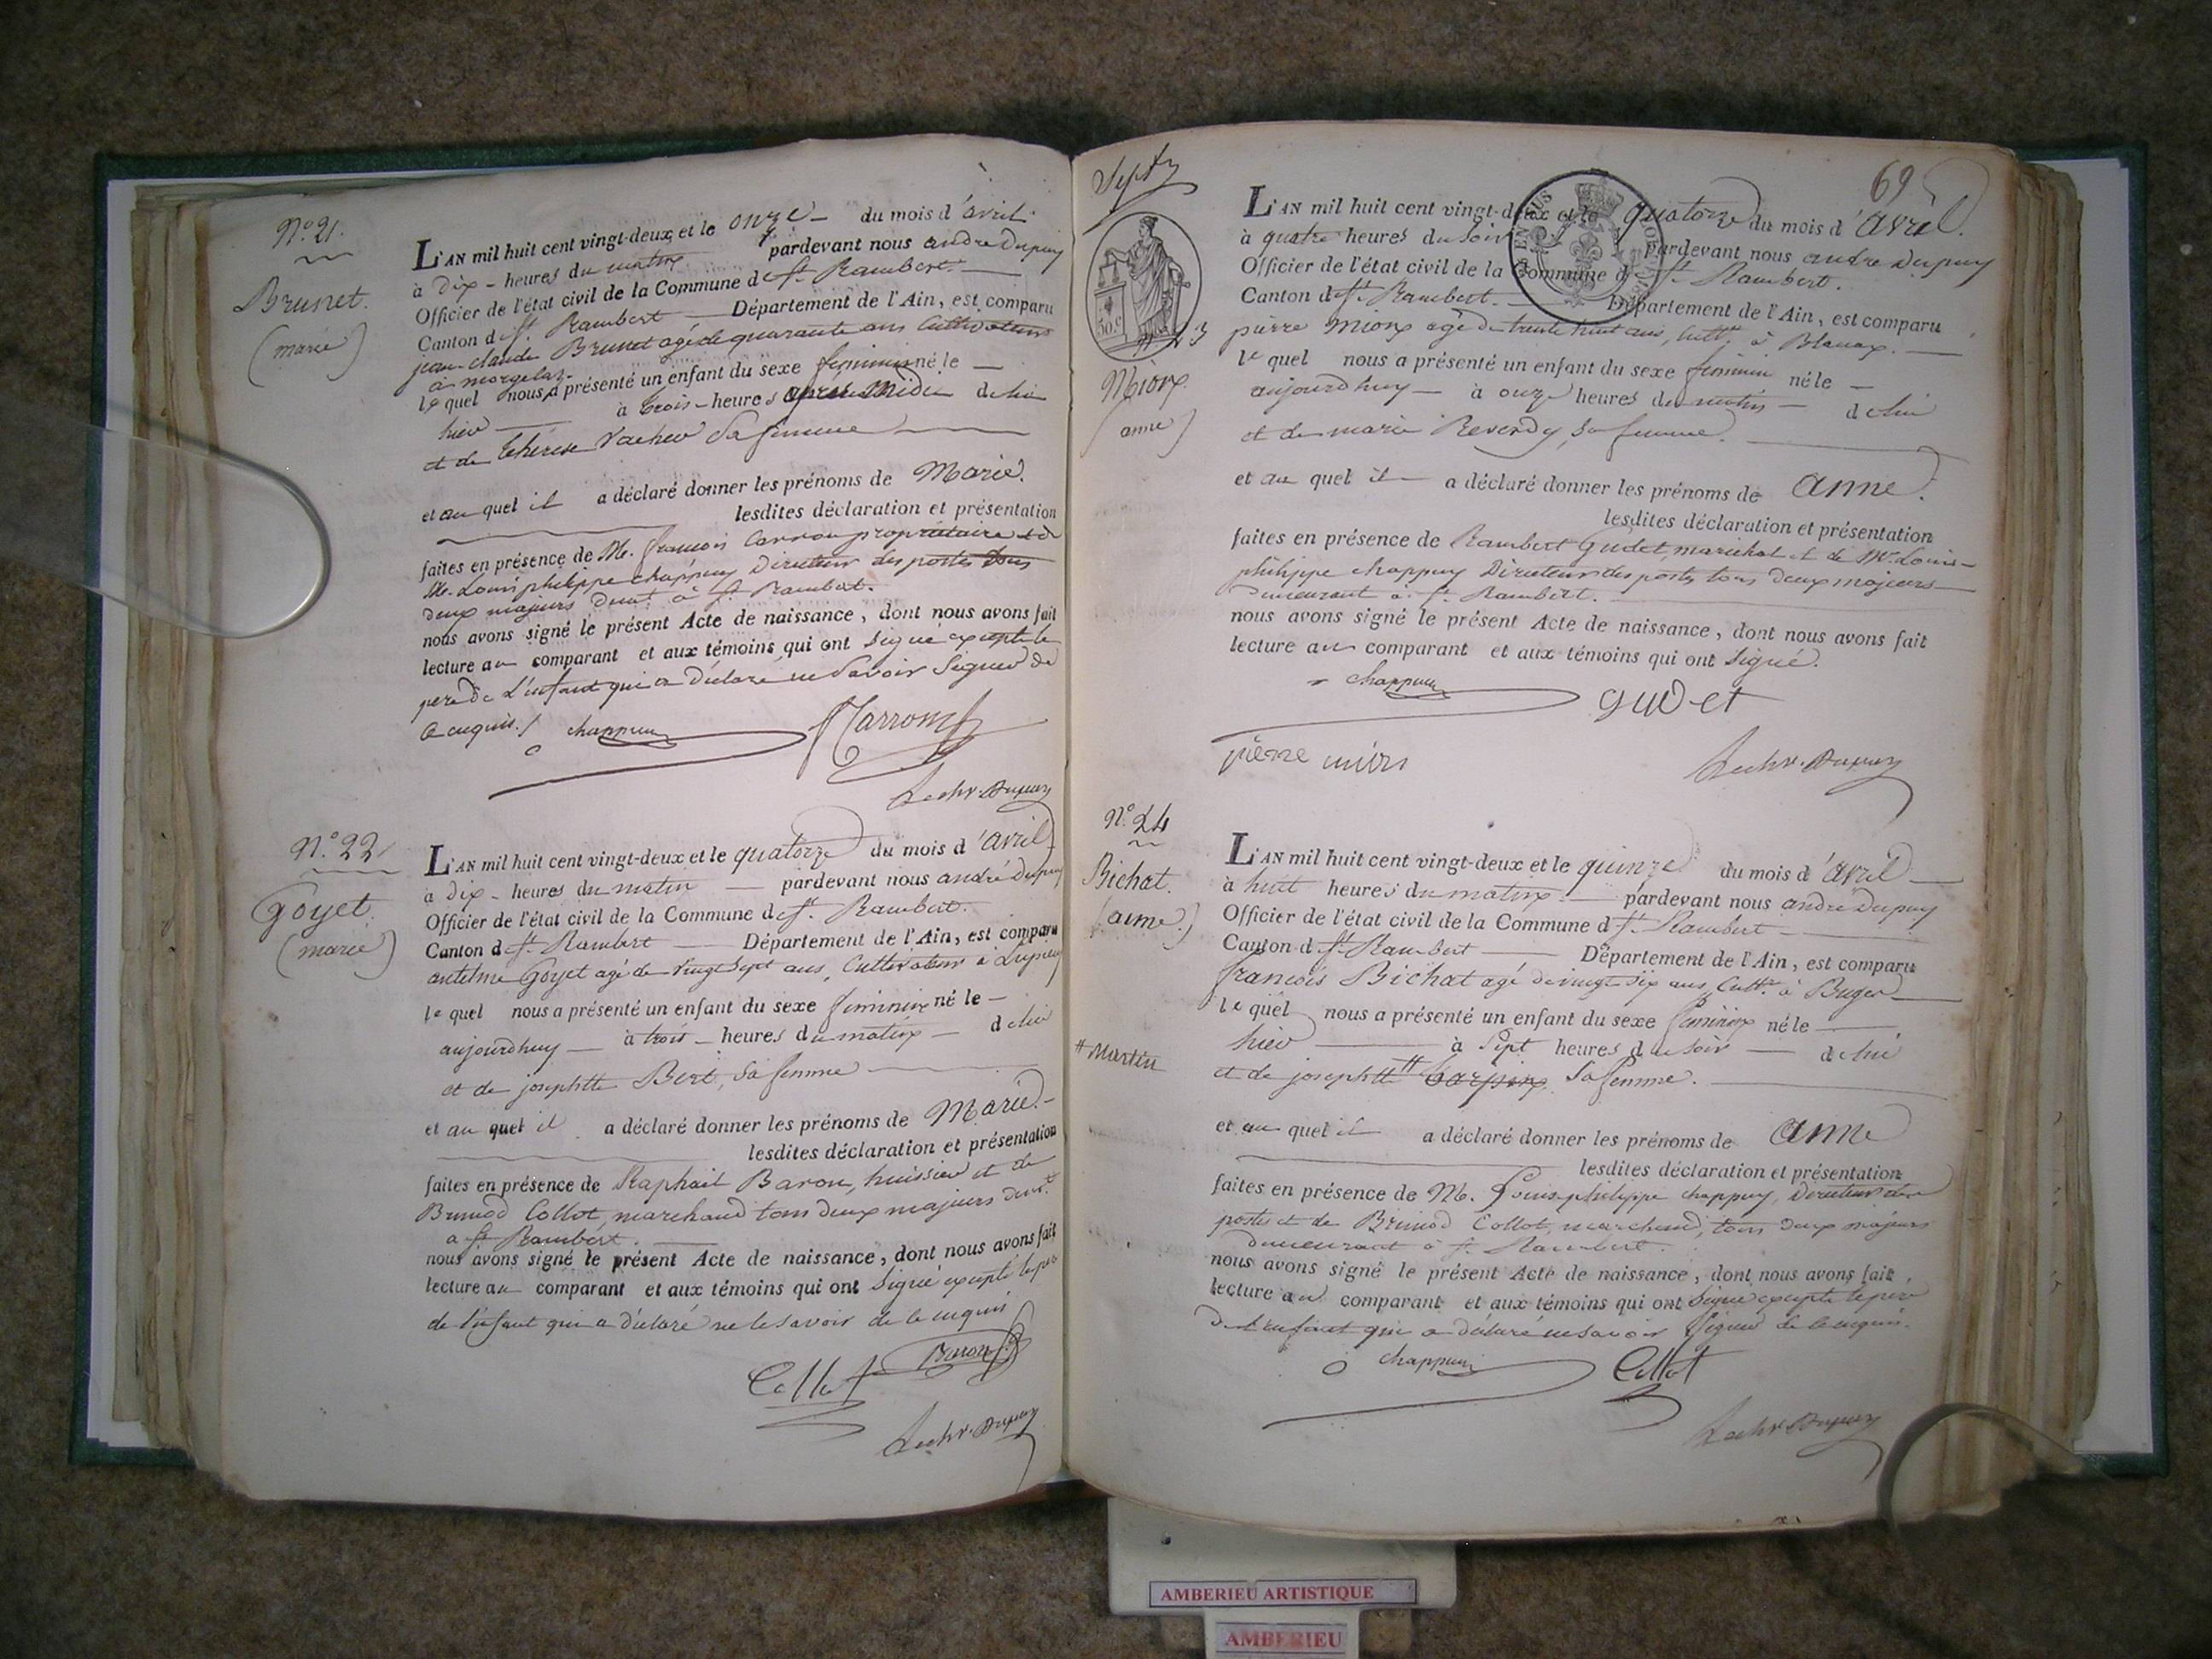 N.° 21.
Brunet.
(marie)
L'AN mil huit cent vingt-deux et le onze du mois d'avril
à dix heures du matin pardevant nous andré dupuy
Officier de l'état civil de la Commune de St. Rambert.
Canton de St. Rambert Département de l'Ain, est comparu
jean claude Brunet agé de quarante ans Cultivateur
à morgelas.
le quel nous a présenté un enfant du sexe feminin né le
hier à trois heures après Midi de lui
et de thérèse Vacher Sa femme
et au quel il a déclaré donner les prénoms de Marie.
lesdites déclaration et présentation
faites en présence de M. françois Carron propriétaire et de
M. Louis philippe chappuy Directeur des postes tous
deux majeurs demt. à St. Rambert.
nous avons signé le présent Acte de naissance, dont nous avons fait
lecture au comparant et aux témoins qui ont signé excepté le
pere de L'enfant qui a déclaré ne Savoir Signer de
ce enquis./ chappuy Carron
Lechr. Dupuy
N.° 22
Goyet
(marie)
L'AN mil huit cent vingt-deux et le quatorze du mois d'avril
à dix heures du matin pardevant nous andré dupuy
Officier de l'état civil de la Commune de St. Rambert.
Canton de St. Rambert Département de l'Ain, est comparu
antelme Goyet agé de vingt Sept ans, Cultivateur à
le quel nous a présenté un enfant du sexe feminin né le
aujourdhuy à trois heures du matin de lui
et de josephtte Bert, Sa femme
et au quel il a déclaré donner les prénoms de Marie.
lesdites déclaration et présentation
faites en présence de Raphaël Baron, huissier et de
Brunod Collot, marchand tous deux majeurs demt.
a St. Rambert.
nous avons signé le présent Acte de naissance, dont nous avons fait
lecture au comparant et aux témoins qui ont Signé excepté le pere
de l'enfant qui a déclaré ne le savoir de ce enquis
Baron
Collot
Lechr. Dupuy
Sept
69
50 c
23
Miorx
(anne)
L'AN mil huit cent vingt-deux et le quatorze du mois d'avril.
à quatre heures du soir pardevant nous andré dupuy
Officier de l'état civil de la Commune de St. Rambert.
Canton de St. Rambert. Département de l'Ain, est comparu
pierre miorx agé de trente huit ans, Cultr. à Blanax.
le quel nous a présenté un enfant du sexe feminin né le
aujourdhuy à onze heures du matin de lui
et de marie Reverdy, sa femme.
et au quel il a déclaré donner les prénoms de anne.
lesdites déclaration et présentation
faites en présence de Rambert Gudet, maréchal et de Mr. Louis
philippe chappuy Directeur des postes tous deux majeurs
demeurant à St. Rambert.
nous avons signé le présent Acte de naissance, dont nous avons fait
lecture au comparant et aux témoins qui ont signé.
chappuy gudet
pierre miors Lechr. Dupuy
N.° 24
Bichat.
(anne.)
L'AN mil huit cent vingt-deux et le quinze du mois d'avril
à huit heures du matin pardevant nous andré dupuy
Officier de l'état civil de la Commune de St. Rambert
Canton de St. Rambert Département de l'Ain, est comparu
françois Bichat agé de vingt six ans, Cultr. à Buges
le quel nous a présenté un enfant du sexe feminin né le
hier à Sept heures du soir de lui
# Martin
et de josephtte # Carpin Sa femme.
et au quel il a déclaré donner les prénoms de anne
lesdites déclaration et présentation
faites en présence de M. Louis philippe chappuy, Directeur des
postes et de Brunod Collot, marchand, tous deux majeurs
demeurant à St. Rambert.
nous avons signé le présent Acte de naissance, dont nous avons fait
lecture au comparant et aux témoins qui ont signé excepté le pere
de l'enfant qui a déclaré ne savoir signer de ce enquis.
chappuy Collot
Lechr. Dupuy
AMBERIEU ARTISTIQUE
AMBERIEU